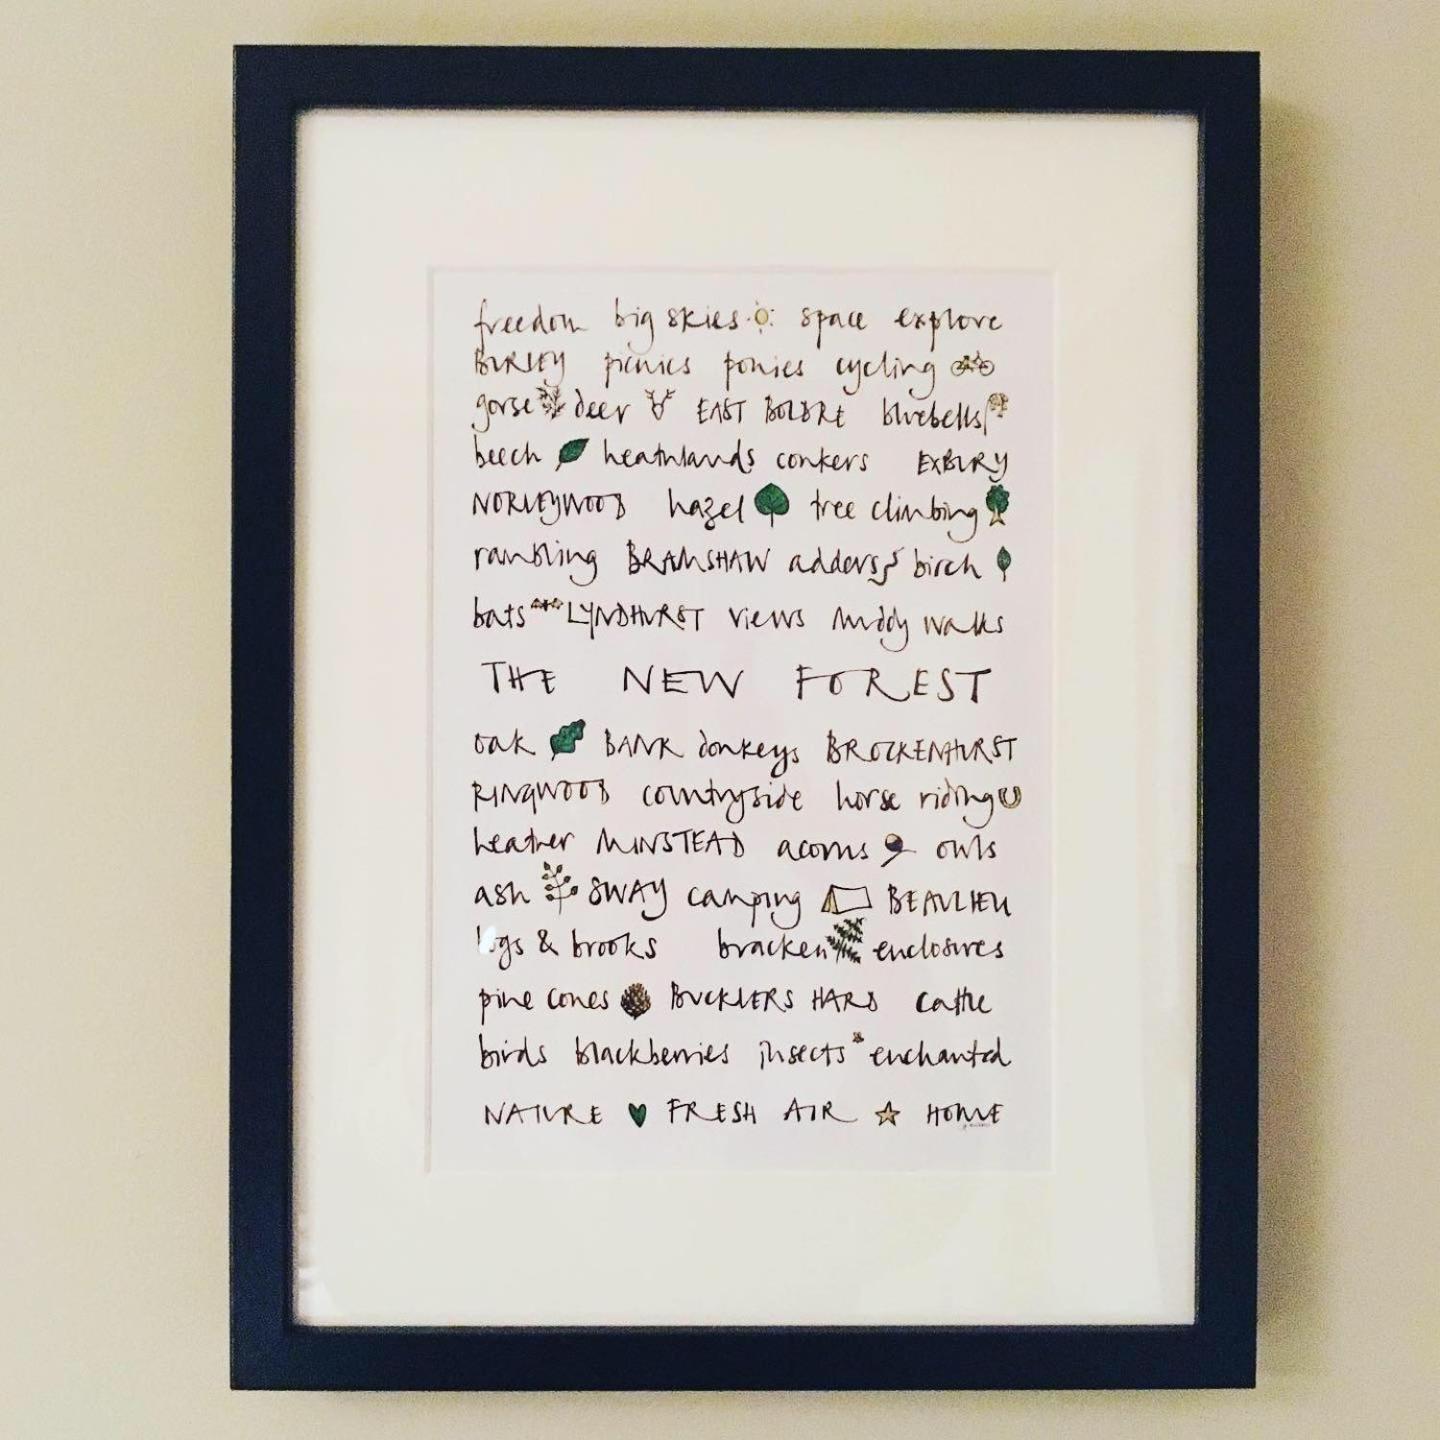 freedom big skies space explore
BURLEY picnics ponies cycling
gorse deer EAST BOLDRE bluebells
beech heathlands conkers EXBURY
NORLEYWOOD hazel tree climbing
rambling BRAMSHAW adders birch
bats LYNDHURST views muddy walks
THE NEW FOREST
oak BANK donkeys BROCKENHURST
RINGWOOD countryside horse riding
heather MINSTEAD acorns owls
ash SWAY camping BEAULIEU
& brooks bracken enclosures
pine cones BUCKLERS HARD cattle
birds blackberries insects enchanted
NATURE FRESH AIR HOME